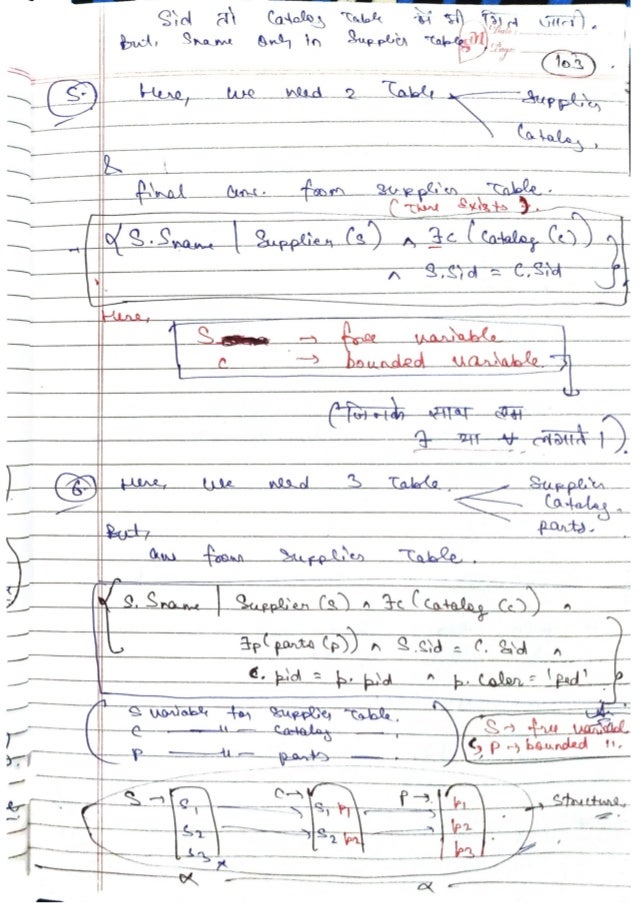 Sid तो Catalog Table में भी मिल जाती.
But, Sname only in Supplier Table
103
5. Here, we need 2 Table
Supplier
Catalog.
&
final ans. from supplier Table.
(There Exists).
{S.Sname | Supplier (s) ∧ ∃c (Catalog (c))
∧ S.Sid = C.Sid }
Here,
S → free variable
c → bounded variable.
(जिनके साथ हम
∃ या ∀ लगाते।).
6. Here, we need 3 Table.
Supplier
Catalog.
parts.
But,
ans from Supplier Table.
{S.Sname | Supplier (s) ∧ ∃c (Catalog (c)) ∧
∃p(parts (p)) ∧ S.Sid = C.Sid ∧
C.pid = p.pid ∧ p.color = 'Red' }
S variable for Supplier Table.
C —"— Catalog —.
P —"— parts —.
S → free variabl
C, P → bounded ".
S → S1 C → S1 P1 P → P1 → Structure
S2 S2 P2 P2
S3 x P3